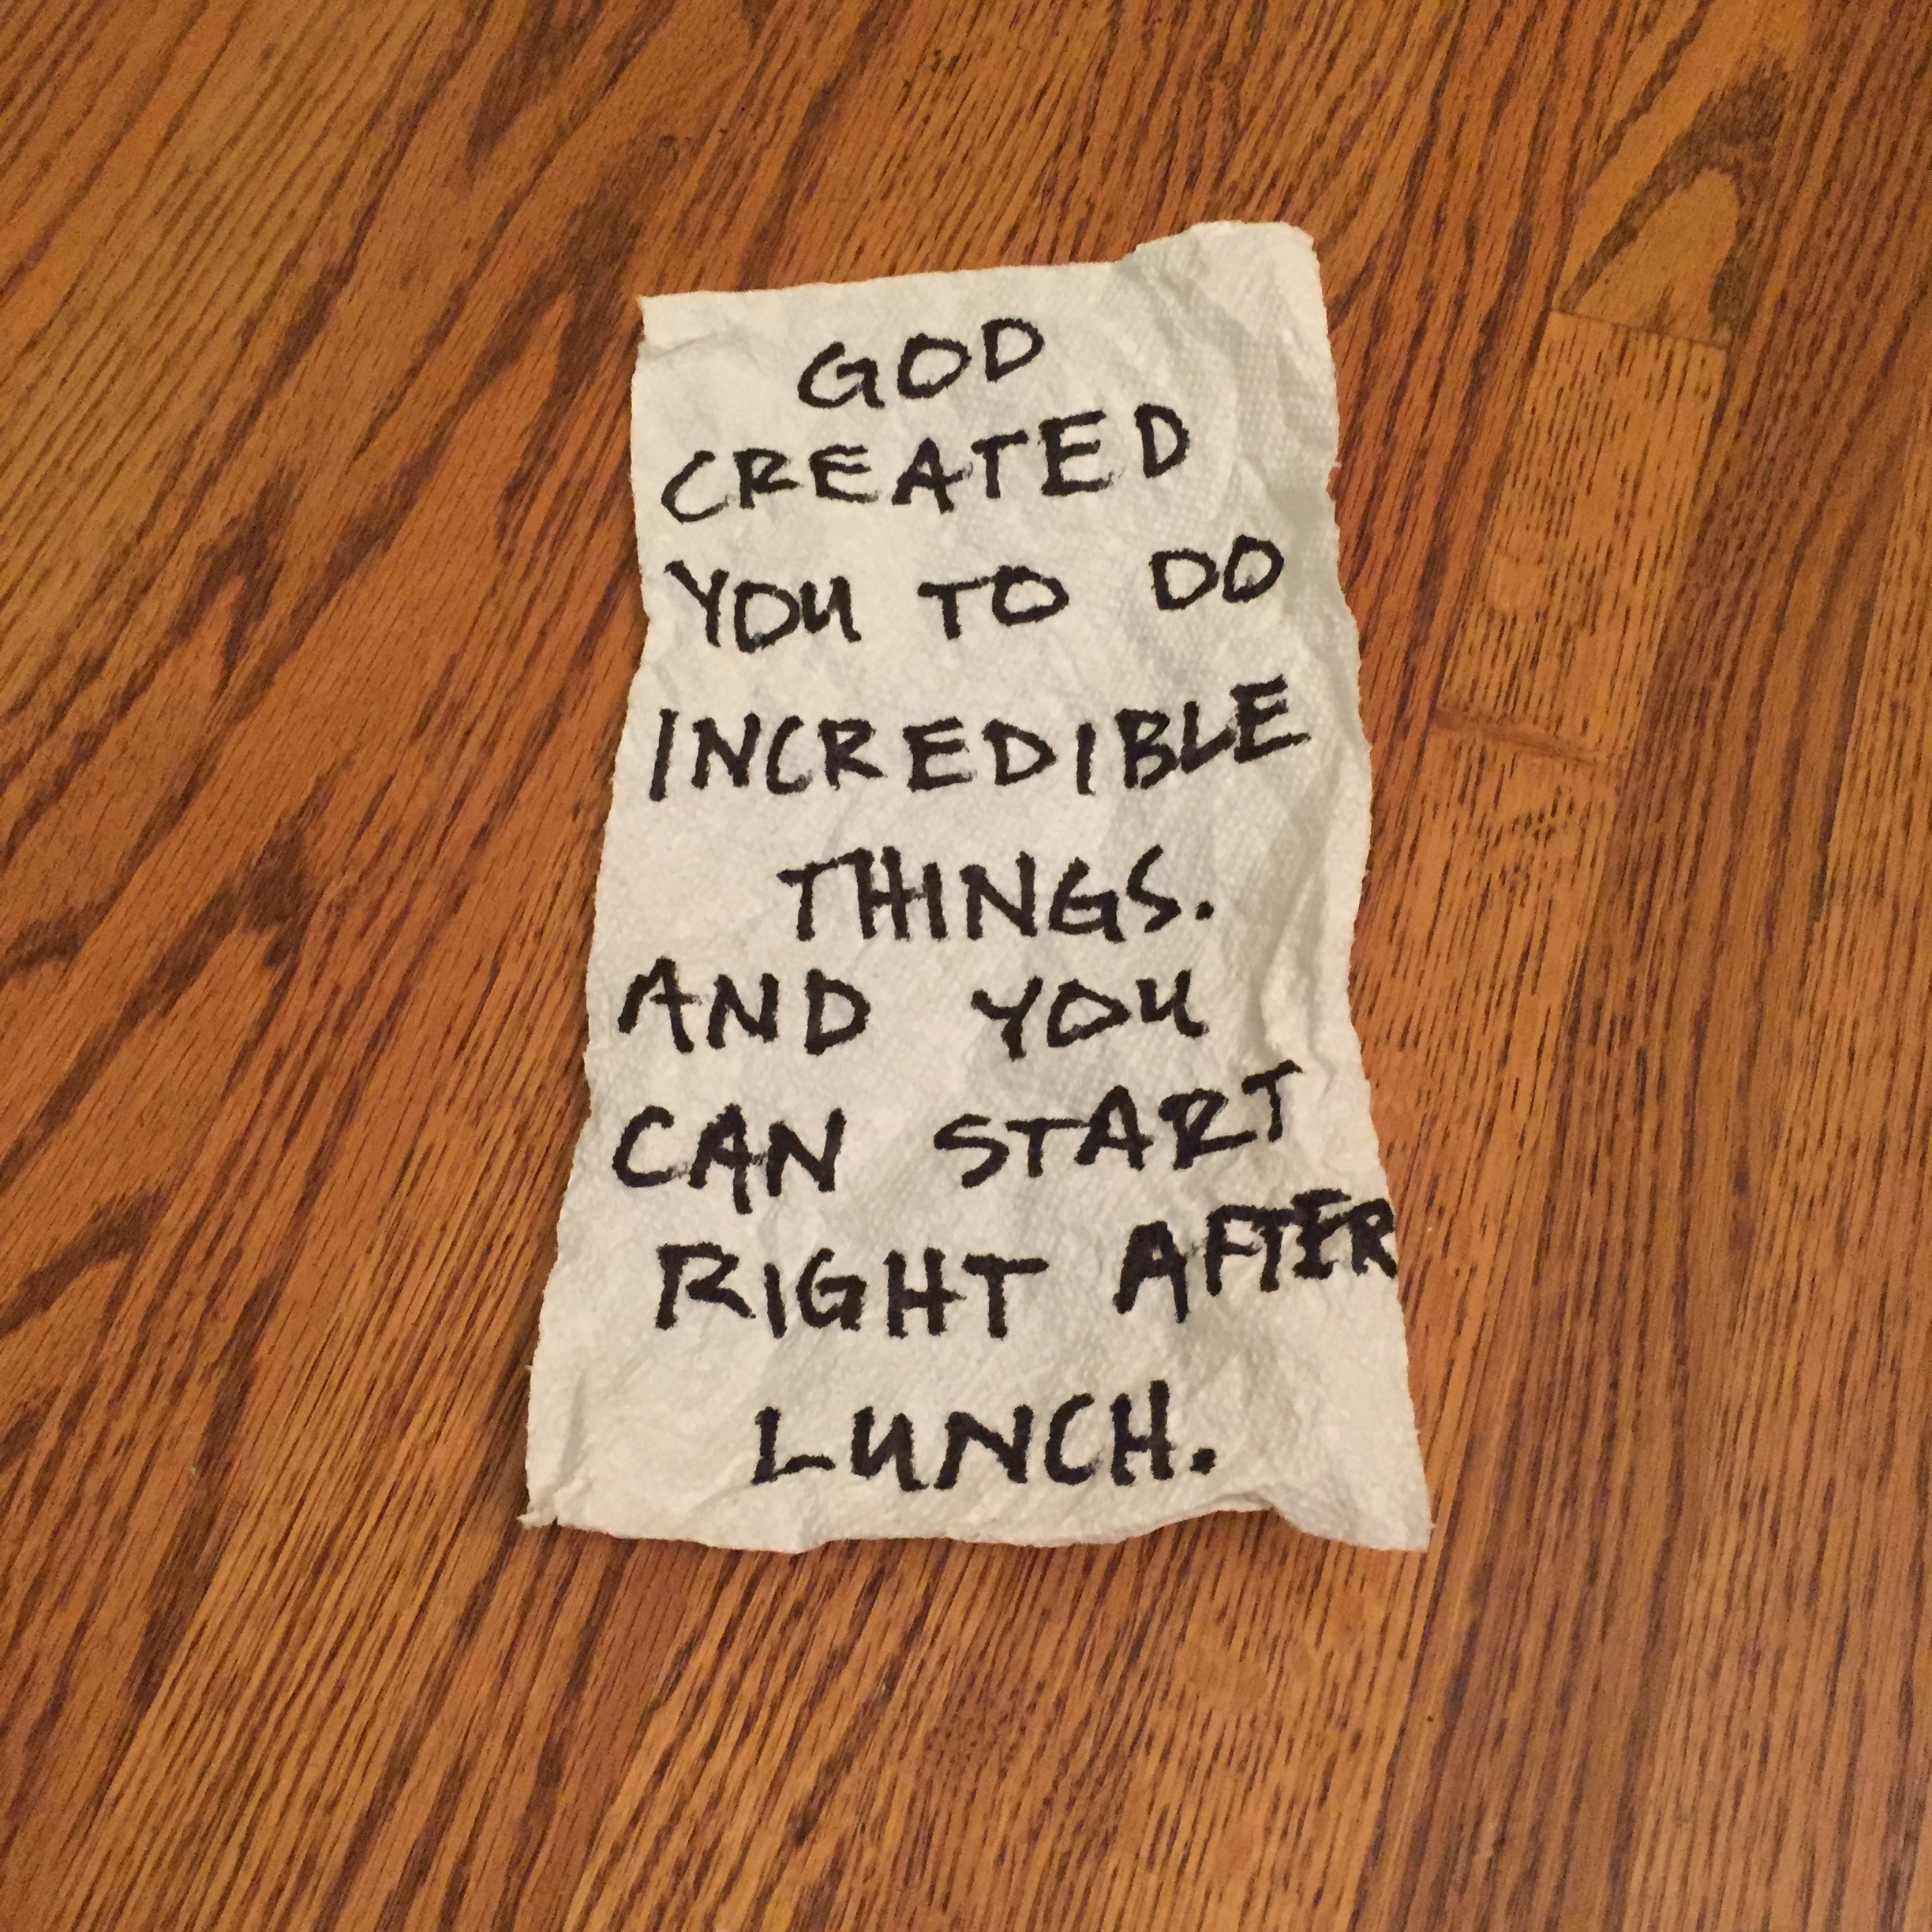 GOD
CREATED
YOU TO DO
INCREDIBLE
THINGS.
AND YOU
CAN START
RIGHT AFTER
LUNCH.